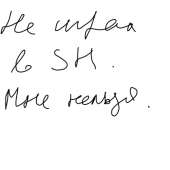 Не играл
в SH.
Мне нельзя.